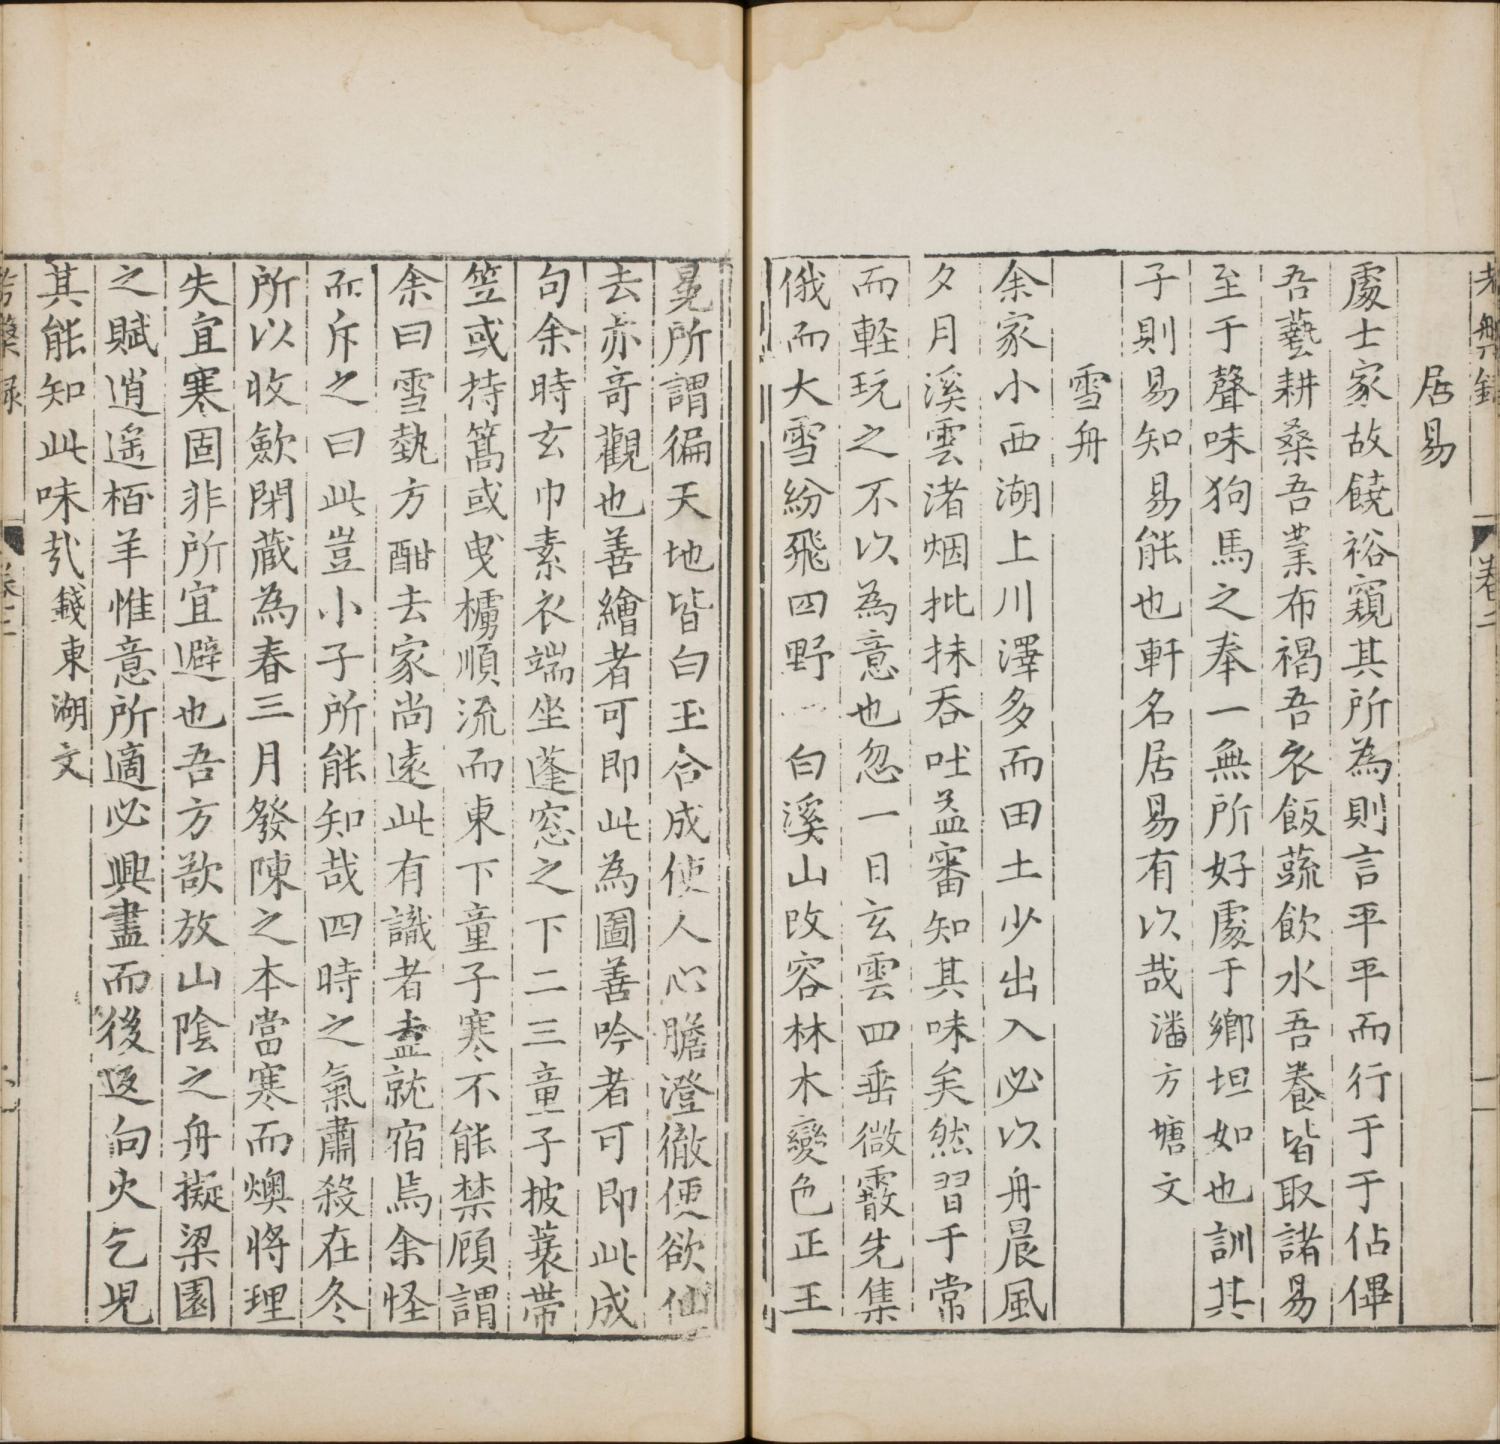 居易
處士家故饒裕窺其所為則言平平而行于于佔僤
吾藝耕桑吾業布褐吾衣飯蔬飲水吾養皆取諸易
至于聲味狗馬之奉一無所好處于鄉坦如也訓其
子則易知易能也軒名居易有以哉潘方塘文
雪舟
余家小西湖上川澤多而田土少出入必以舟晨風
夕月溪雲渚烟批抹吞吐益審知其味矣然習于常
而軽玩之不以為意也忽一日玄雲四垂微霰先集
俄而大雪紛飛四野一白溪山改容林木變色正王
晃所謂徧天地皆白玉合成使人心膽澄徹便欲仙
去亦奇觀也善繪者可即此為圖善吟者可即此成
句余時玄巾素衣端坐蓬窓之下二三童子披蓑帶
笠或持篙或曳櫓順流而東下童子寒不能禁顧謂
余曰雪執方酣去家尚遠此有識者盍就宿焉余怪
而斥之曰此豈小子所能知哉四時之氣肅殺在冬
所以收歛閉蔵為春三月發陳之本當寒而燠將理
失宜寒固非所宜避也吾方歌放山陰之舟擬梁園
之賦逍遙栢羊惟意所適必興盡而後返向火乞児
其能知此味㢤錢東湖文
卷二